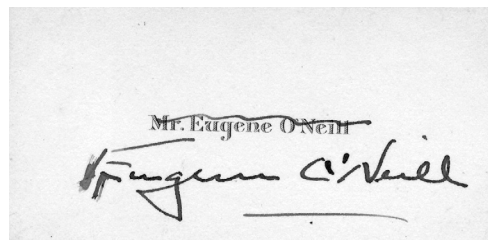 Mr. Eugene O'Neill
Eugene O'Neill